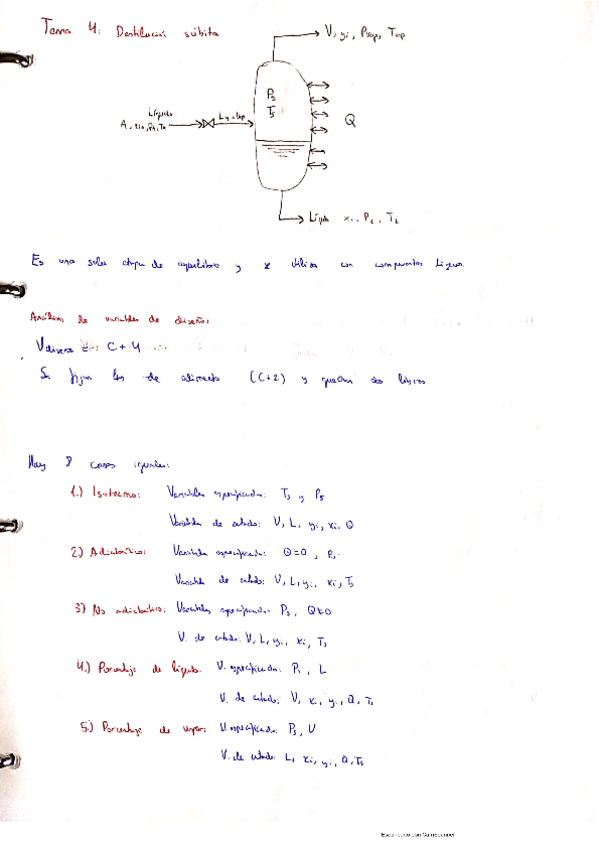 Tema 4: Destilación súbita
V, yi, Pvap, Tvap
Ps
Ts
Q
Líquido
L, xi, PL, TL
Es una sola etapa de equilibrio y se utiliza con compuestos ligeros.
Análisis de variables de diseño:
Vdiseño = C+4
Se fijan las de alimento (C+2) y quedan dos libres
Hay 8 casos iguales:
1.) Isotermo: Variables especificadas: Ts y Ps
Variables de calculo: V, L, yi, xi, Q
2) Adiabático: Variables especificadas: Q=0, Ps
Variable de calculo: V, L, yi, xi, Ts
3) No adiabático: Variables especificadas: Ps, Q≠0
V. de calculo: V, L, yi, xi, Ts
4.) Porcentaje de líquido: V. especificadas: Ps, L
V. de calculo: V, xi, yi, Q, Ts
5.) Porcentaje de vapor: V. especificadas: Ps, V
V. de calculo: L, xi, yi, Q, Ts
Escaneado con CamScanner